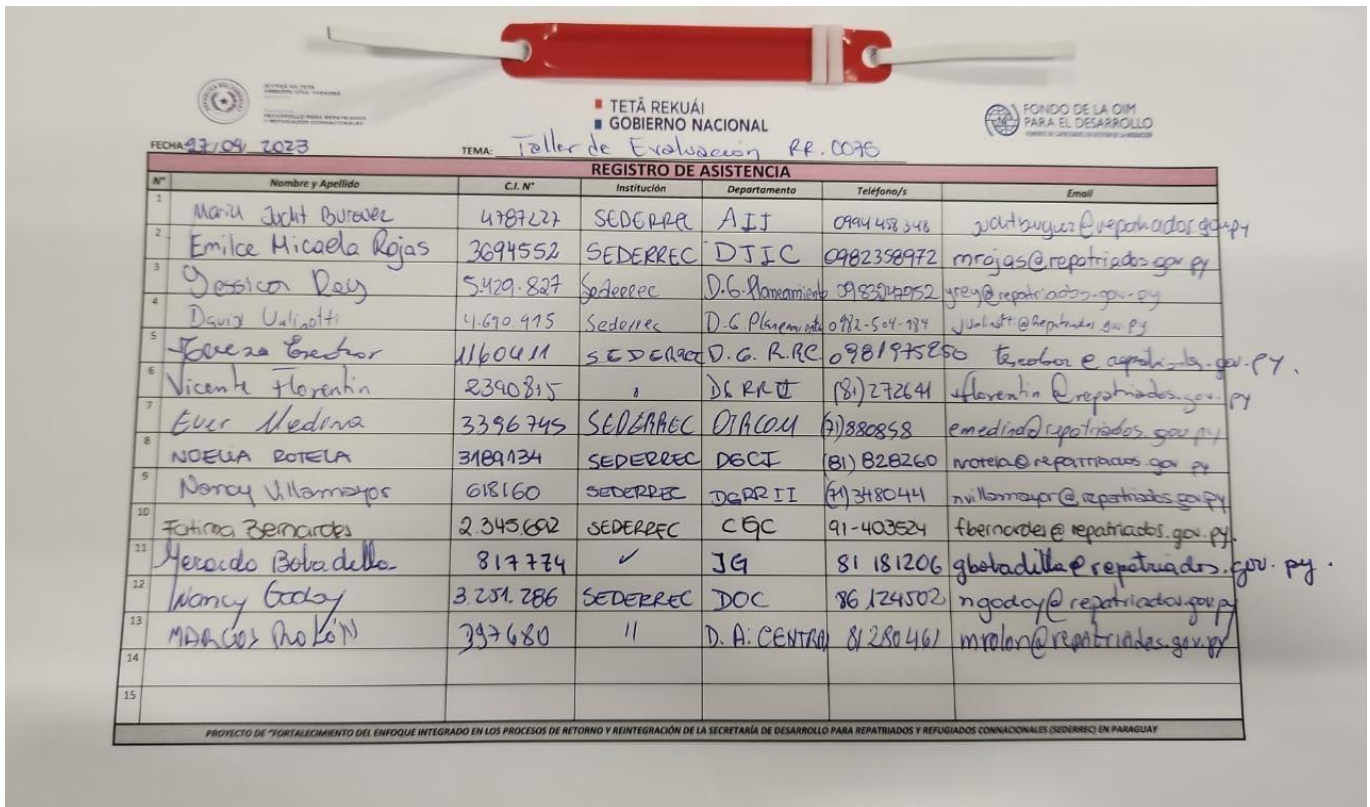 TETÃ REKUÁI
GOBIERNO NACIONAL
FONDO DE LA OIM
PARA EL DESARROLLO
FECHA: 27/09/2023 TEMA: Taller de Evaluación RR.0075
REGISTRO DE ASISTENCIA
N° Nombre y Apellido C.I. N° Institución Departamento Teléfono/s Email
1 Maria 4787227 SEDERREC AIJ 0994 458 348
2 Emilce Micaela Rojas 3694552 SEDERREC DTIC 0982358972 mrojas@repatriados.gov.py
3 Yessica Rey 5.429.827 Sederrec D.G. Planeamiento 0983047952 yrey@repatriados.gov.py
4 David Valinotti 4.690.915 Sederrec D.G Planeamiento 0982-504-184
5 1160411 SEDERREC D.G.R.RC 0981975250
6 Vicente Florentin 2390815 (81)272641 vflorentin@repatriados.gov.py
7 Ever Medina 3396745 SEDERREC DIRCOM (71)880858 emedina@repatriados.gov.py
8 NOELIA ROTELA 3189134 SEDERREC DGCI (81) 828260 nrotela@repatriados.gov.py
9 Nancy Villamayor 618160 SEDERREC DGRRII (71)348044 nvillamayor@repatriados.gov.py
10 Fatima Bernardes 2.345.692 SEDERREC CGC 91-403524 fbernardes@repatriados.gov.py.
11 Gerardo Bobadilla 817774 ✓ JG 81 181206 gbobadilla@repatriados.gov.py.
12 Nancy Godoy 3.251.286 SEDERREC DOC 86 124502 ngodoy@repatriados.gov.py
13 MARCOS ROLÓN 397680 11 D. A. CENTRAL 81280461 mrolon@repatriados.gov.py
14
15
PROYECTO DE "FORTALECIMIENTO DEL ENFOQUE INTEGRADO EN LOS PROCESOS DE RETORNO Y REINTEGRACIÓN DE LA SECRETARÍA DE DESARROLLO PARA REPATRIADOS Y REFUGIADOS CONNACIONALES (SEDERREC) EN PARAGUAY